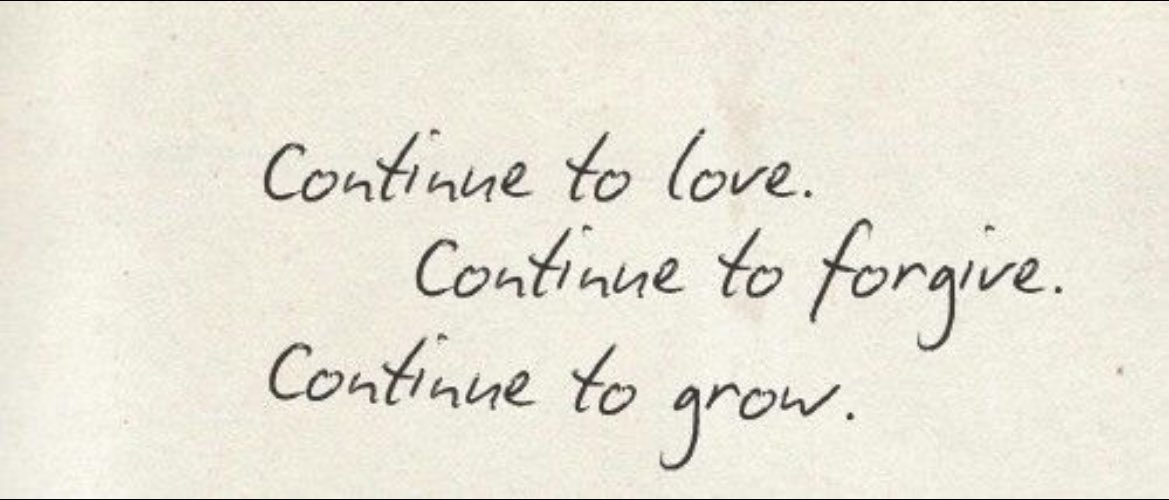 Continue to love.
Continue to forgive.
Continue to grow.